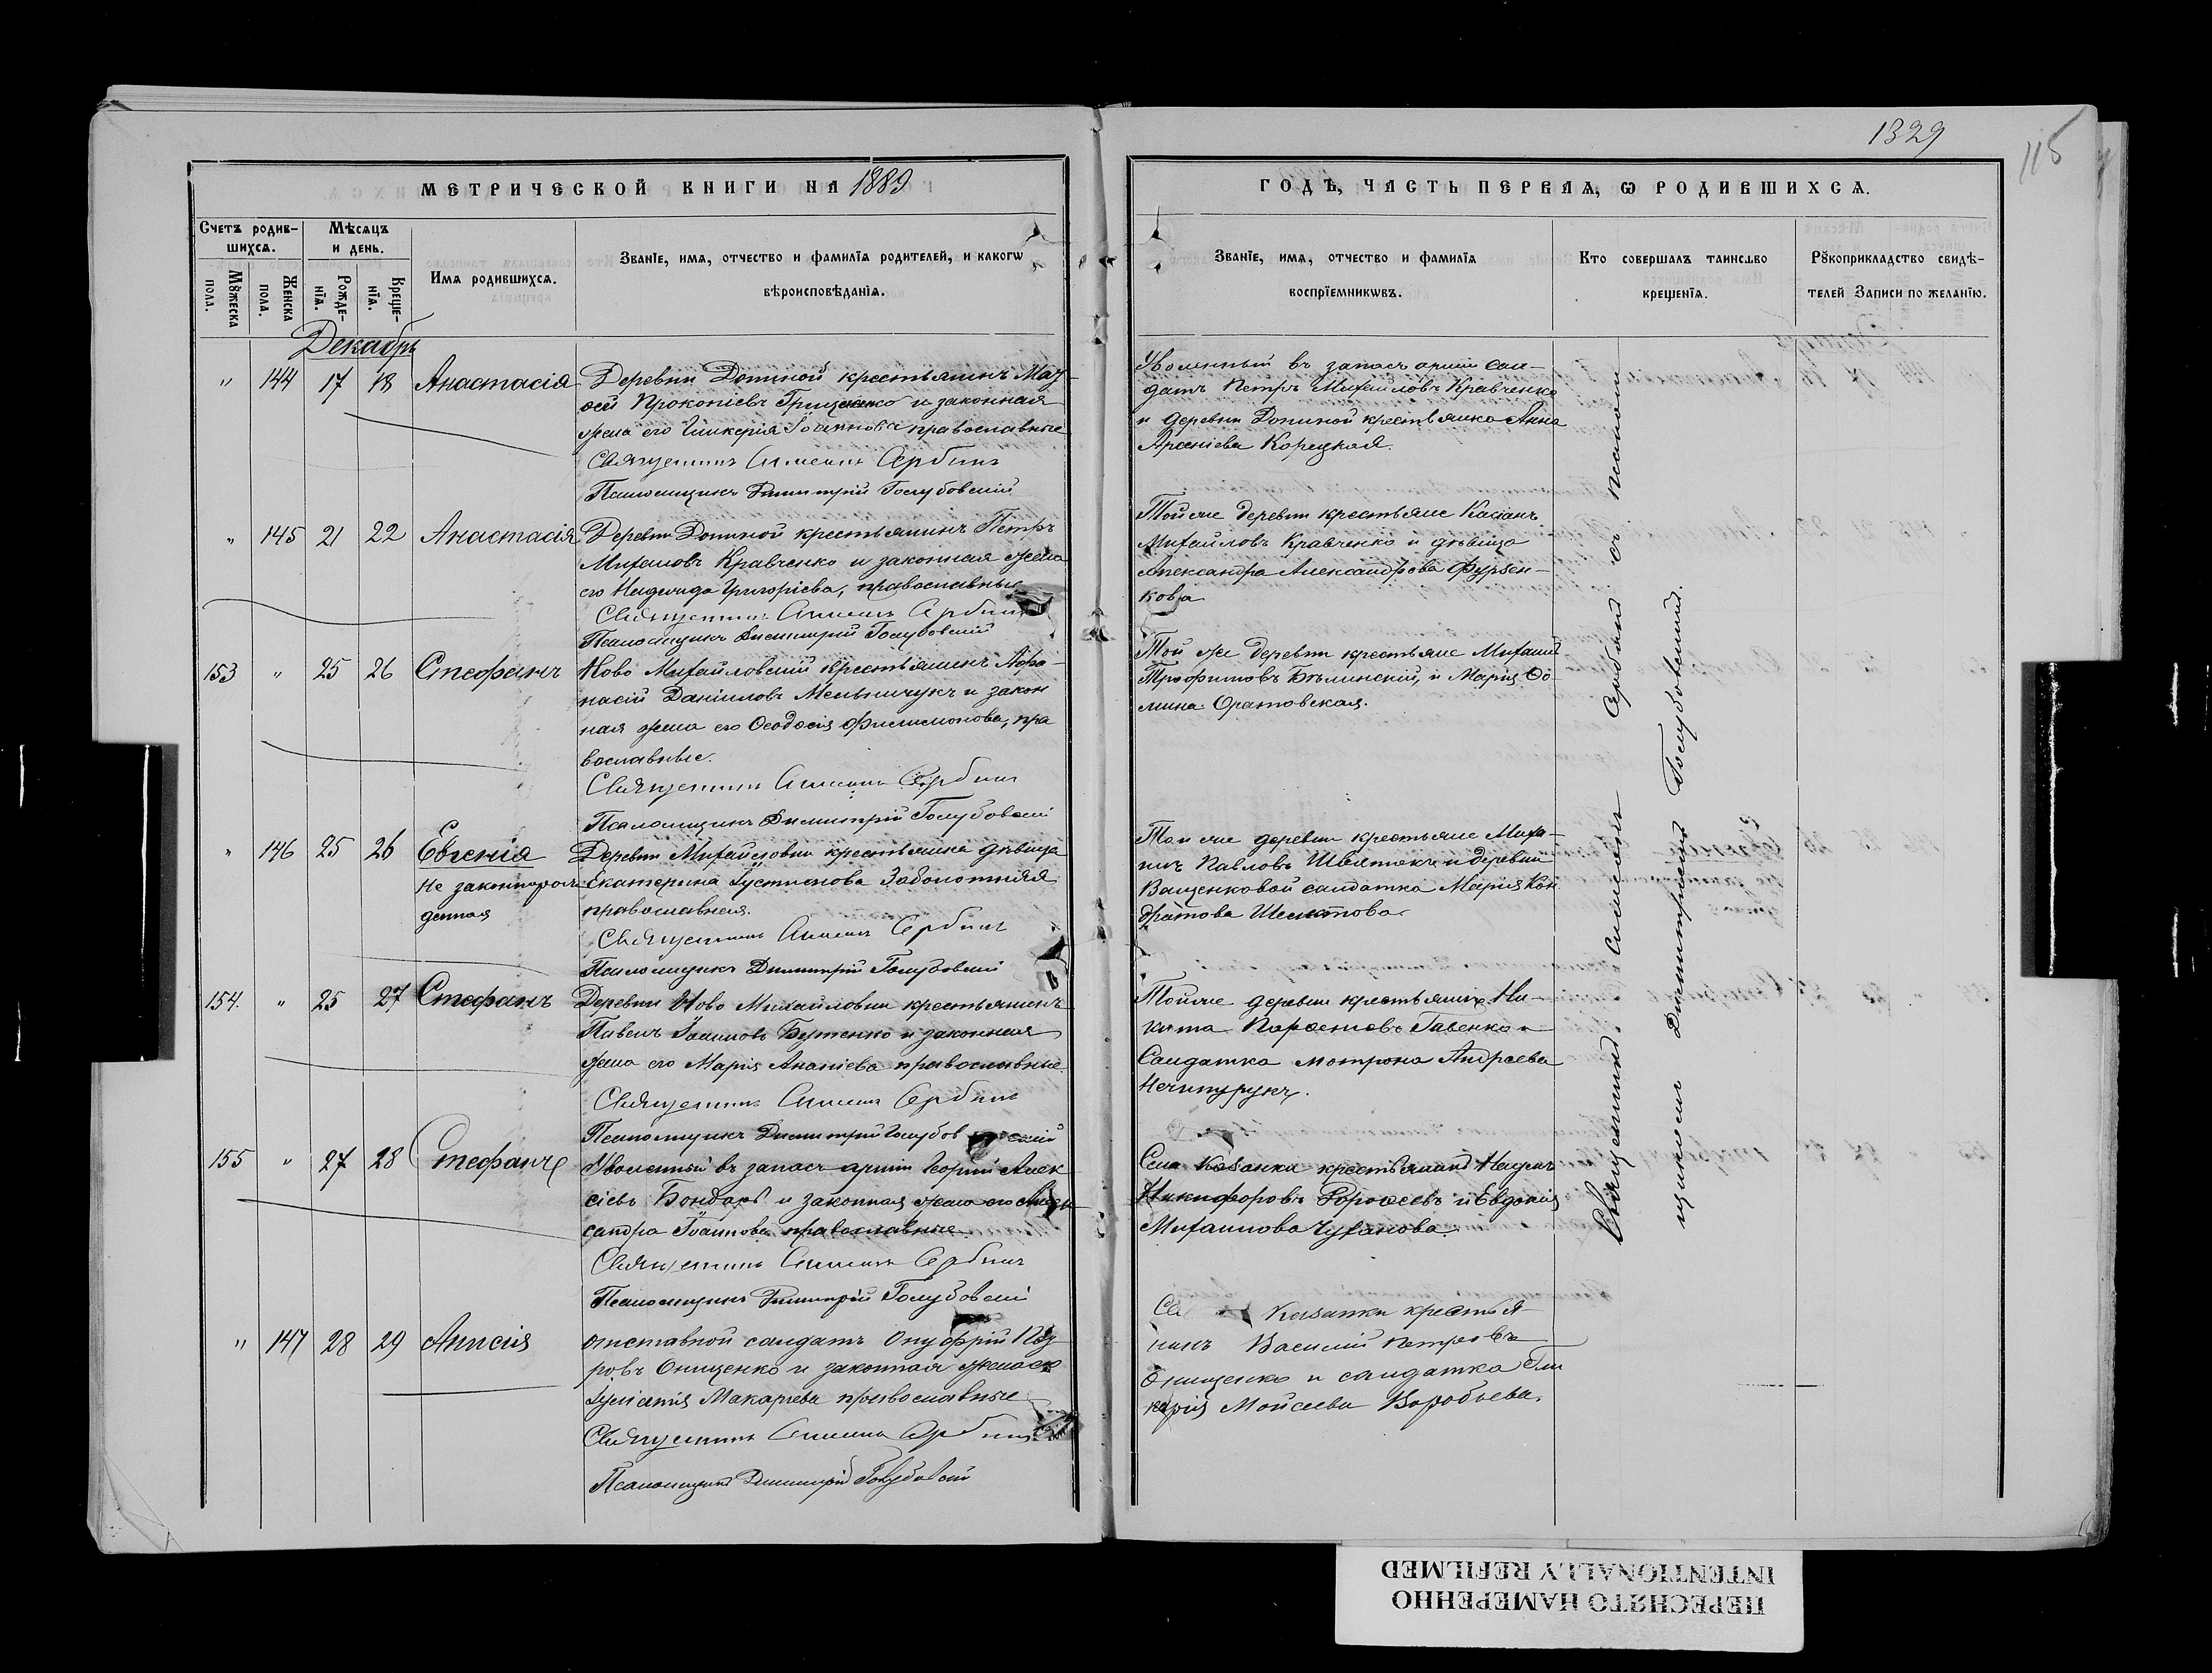 1329
115
МЕТРИЧЕСКОЙ КНИГИ НА 1889
ГОДЪ, ЧАСТЬ ПЕРВАЯ, Ѡ РОДИВШИХСЯ.
Счетъ родив-
шихся.
Мѣсяцъ
и день.
Имя родившихся.
Званіе, имя, отчество и фамилія родителей, и какогѡ
вѣроисповѣданія.
Мꙋжеска
пола.
Женска
пола.
Рожде-
нія.
Креще-
нія.
Званіе, имя, отчество и фамилія
воспріемникѡвъ.
Кто совершалъ таинство
крещенія.
Рꙋкоприкладство свидѣ-
телей Записи по желанію.
Декабрь
" 144 17 18 Анастасія
Деревни Долиной крестьянинъ
Прокопіевъ Грищенко и законная
жена его Гликерія Іоаннова православные
Священникъ Симеонъ Сербинъ
Псаломщикъ Димитрій Голубовскій
Уволенный въ запасъ арміи сол-
датъ Петръ Михайловъ Кравченко
и деревни Долиной крестьянка Анна
Арсеніева Корецкая.
" 145 21 22 Анастасія
Деревни Долиной крестьянинъ Петръ
Михаиловъ Кравченко и законная жена
его Надежда Григоріева, православные
Священникъ Симеонъ Сербинъ
Псаломщикъ Димитрій Голубовскій
Той же деревни крестьяне Касіанъ
Михайловъ Кравченко и дѣвица
Александра Александрова
кова
153 " 25 26 Стефанъ
Ново Михайловский крестьянинъ Афа-
насій Даніиловъ Мельничукъ и закон
ная жена его Ѳеодосія Филимонова, пра
вославные.
Священникъ Симеонъ Сербинъ
Псаломщикъ Димитрій Голубовскій
Той же деревни крестьяне Михаилъ
Трофимовъ Бѣлинскій, и Марія Ѳо
мина Оратовская.
" 146 25 26 Евгенія
не законнорож-
денная
Деревни Михайловки крестьянка дѣвица
Екатерина Іустинова Заболотняя
православная.
Священникъ Симеонъ Сербинъ
Псаломщикъ Димитрій Голубовскій
Той же деревни крестьяне Миха-
илъ Павловъ и деревни
Ващенковой солдатка Марія Кон
дратова
154. " 25 27 Стефанъ
Деревни Ново Михайловки крестьянинъ
Павелъ Іоанновъ Бутенко и законная
жена его Марія Ананіева православные
Священникъ Симеонъ Сербинъ
Псаломщикъ Димитрій Голубовскій
Той же деревни крестьянинъ Ни-
кита Гавенко и
Солдатка Мотрона Андреева
Нечипурукъ.
155 " 27 28 Стефанъ
Уволенный въ запасъ арміи Георгій Алек
сіевъ Бондарь и законная жена его Алек
сандра Іоаннова православные
Священникъ Симеонъ Сербинъ
Псаломщикъ Димитрій Голубовскій
Села Казанки крестьянинъ
Никифоровъ и Евдокія
Михаилова Чуханова.
" 147 28 29 Анисія
отставной солдатъ Онуфрій
ровъ Онищенко и законная жена его
Іуліанія Макарьева православные
Священникъ Симеонъ Сербинъ
Псаломщикъ Димитрій Голубовскій
Казанки крестья-
нинъ Василій Петровъ
Онищенко и солдатка Гли
керія Мойсеева Воробьева.
Священникъ Симеонъ Сербинъ съ псалом
щикомъ Димитріемъ Голубовскимъ.
ПЕРЕСНЯТО НАМЕРЕННО
INTENTIONALLY REFILMED